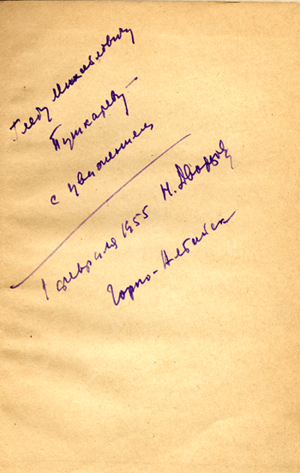 Глебу Михайловичу
Пушкареву
с уважением
Н. Дворцов
1 февраля 1955
Горно-Алтайск